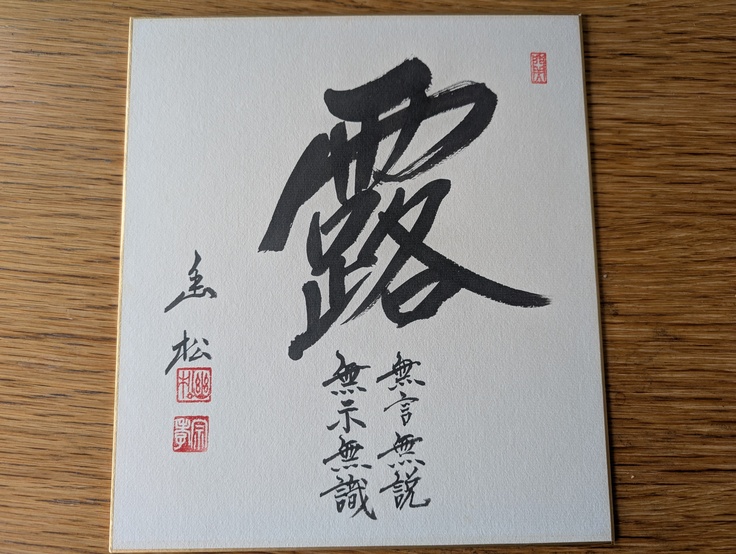 露
無言無説
無示無識
幽松